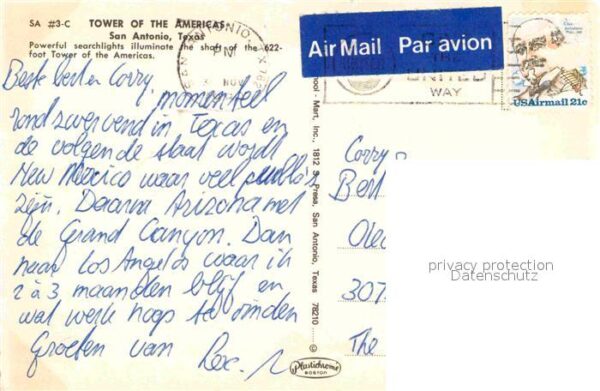 SA #3-C TOWER OF THE AMERICAS
San Antonio, Texas
Powerful searchlights illuminate the shaft of the 622-
foot Tower of the Americas.
Beste bert en Corry,
momenteel
rond zwervend in Texas en
de volgende staat wordt
New Mexico waar veel pueblo's
zijn. Daarna Arizona met
de Grand Canyon. Dan
naar Los Angelos waar ik
2 à 3 maanden blijf en
wat werk hoop te vinden
Groeten van Rex.
School-Mart, Inc., 1812 S. Presa, San Antonio, Texas 78210
© Plastichrome
BOSTON
Air Mail Par avion
SAN ANTONIO, TX
PM
NOV
UNITED
WAY
USAirmail 21c
Corry
Bert
307
The
privacy protection
Datenschutz